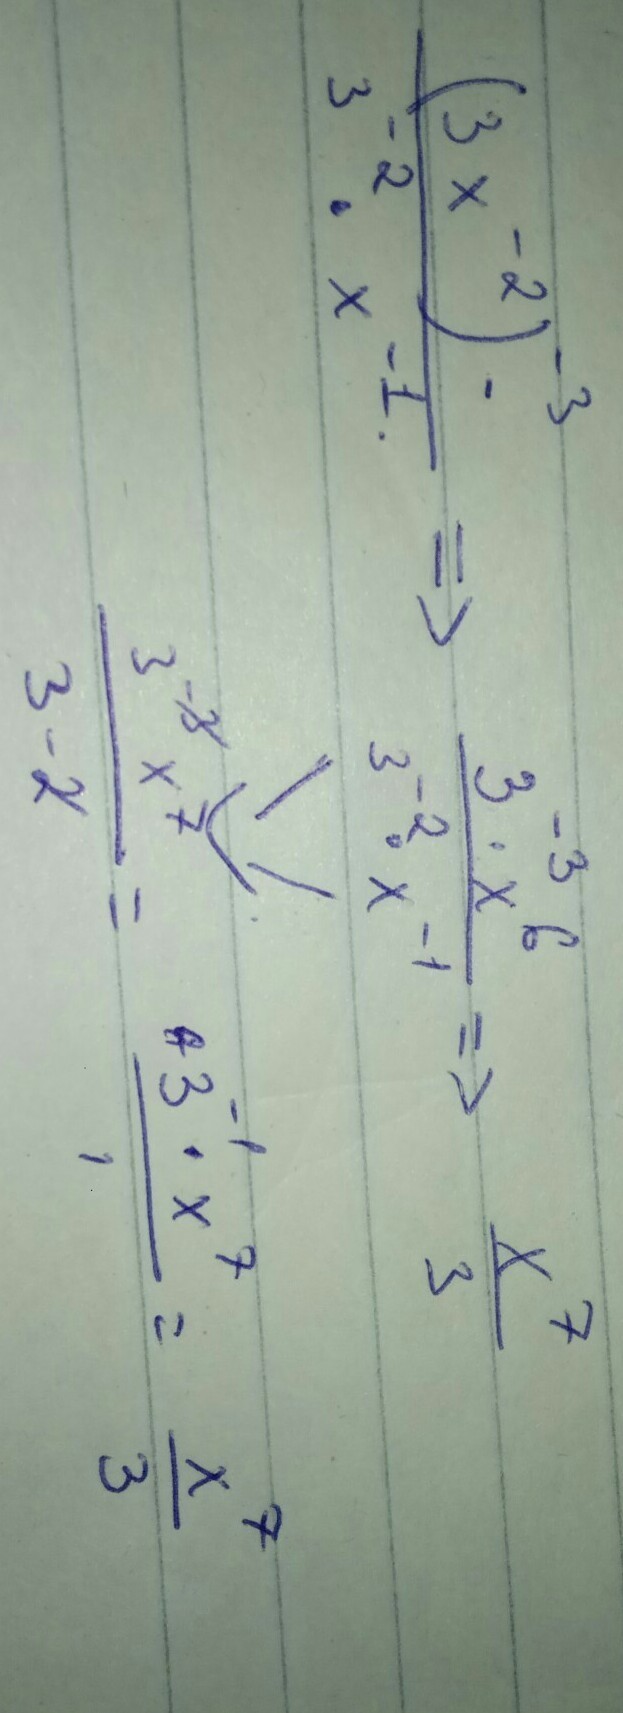 (3x⁻²)⁻³ / 3⁻² · x⁻¹ => 3⁻³ · x⁶ / 3⁻² · x⁻¹ => x⁷ / 3
3⁻³ x⁷ / 3⁻² = 3⁻¹ · x⁷ / 1 = x⁷ / 3